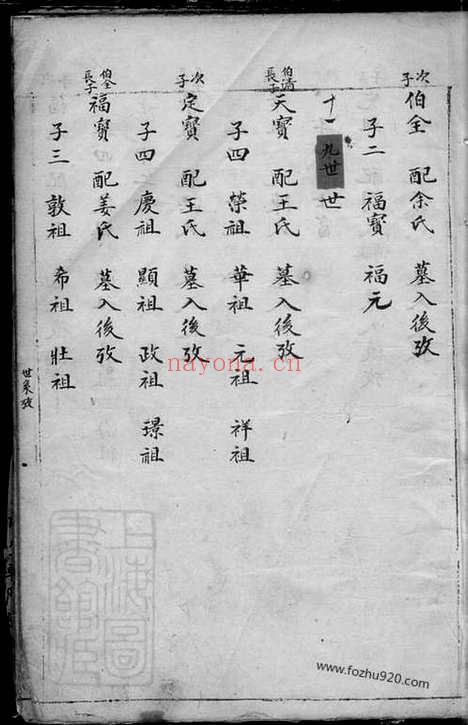 次子伯全 配余氏 墓入後攷
子二 福寳 福元
十一世
九世
伯滿長子天寳 配王氏 墓入後攷
子四 榮祖 華祖 元祖 祥祖
次子定寳 配王氏 墓入後攷
子四 慶祖 顯祖 政祖 璟祖
伯全長子福寳 配姜氏 墓入後攷
子三 敦祖 希祖 壯祖
世系攷
nayona.cn
上海圖書館藏
www.fozhu920.com